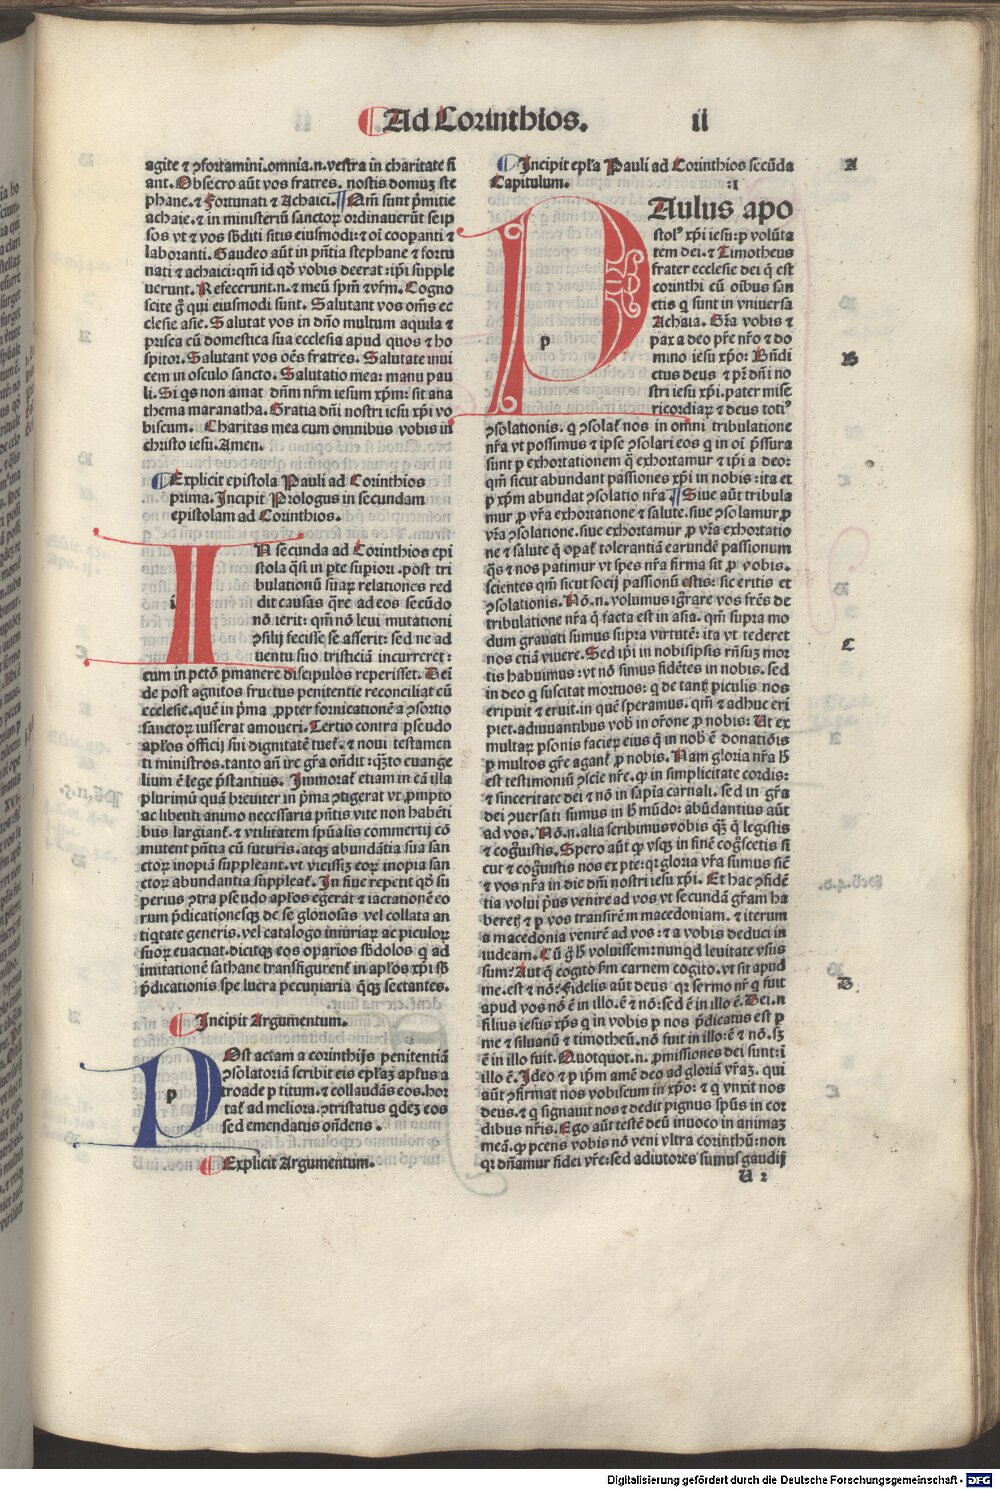 Ad Corinthios. ii
agite ⁊ ꝯfortamini.omnia.n.vestra in charitate fi
ant. Obsecro aūt vos fratres. nostis domuꝫ ste
phane. ⁊ Fortunati ⁊ Achaici. Qm̄ sunt p̄mitie
achaie.⁊ in ministeriū sanctoꝝ ordinauerūt seip
sos vt ⁊ vos sb̄diti sitis eiusmodi:⁊ oī coopanti ⁊
laboranti. Gaudeo aūt in pn̄tia stephane ⁊ fortu
nati ⁊ achaici:qm̄ id qḋ vobis deerat :ip̄i supple
uerunt. Refecerunt.n.⁊ meū spm̄ ⁊ vr̄m. Cogno
scite g̊ qui eiusmodi sunt. Salutant vos om̄s ec
clesie asie. Salutāt vos in dn̄o multum aquila ⁊
prisca cū domestica sua ecclesia apud quos ⁊ ho
spitor. Salutant vos oēs fratres. Salutate inui
cem in osculo sancto. Salutatio mea: manu pau
li. Si qs non amat dn̄m nr̄m iesum xp̄m: sit ana
thema maranatha. Gratia dn̄i nostri iesu xp̄i vo
biscum. Charitas mea cum omnibus vobis in
christo iesu. Amen.
Explicit epistola Pauli ad Corinthios
prima. Incipit Prologus in secundam
epistolam ad Corinthios.
i N secunda ad Corinthios epi
stola qsi in ꝑte supiori .post tri
bulationū suaꝝ relationes red
dit causas qre ad eos secūdo
nō ierit: qm̄ nō leui mutationi
ꝯsilij fecisse se asserit: sed ne ad
uentu suo tristiciā incurreret:
cum in pctō ꝑmanere discipulos reperisset. Dei
de post agnitos fructus penitentie reconciliat cū
ecclesie.quē in p̄ma ꝓpter fornicationē a ꝯsortio
sanctoꝝ iusserat amoueri. Tertio contra pseudo
apl̄os officij sui dignitatē tuet᷑. ⁊ noui testamen
ti ministros.tanto an̄ ire gr̄a on̄dit :qꝫto euange
lium ē lege p̄stantius. Immorat᷑ etiam in eā illa
plurimū quā breuiter in p̄ma ꝯtigerat vt ꝓmpto
ac libenti animo necessaria pn̄tis vite non habēti
bus largiant᷑. ⁊ vtilitatem spūalis commercij cō
mutent pn̄tia cū futuris. atqꝫ abundātia sua san
ctoꝝ inopiā suppleant.vt vicissiꝫ eoꝝ inopia san
ctoꝝ abundantia suppleat᷑. In fine repetit qḋ su
perius ꝯtra pseudo apl̄os egerat ⁊ iactationē eo
rum p̄dicationesqꝫ de se gloriosas vel collata an
tiqtate generis. vel catalogo iniuriaꝝ ac piculoꝝ
suoꝝ euacuat.dicitqꝫ eos oparios sb̄dolos q ad
imitationē sathane transfigurent᷑ in apl̄os xp̄i sb̄
p̄dicationis spe lucra pecuniaria qqꝫ sectantes.
Incipit Argumentum.
p Ost actam a corinthijs penitentiā
ꝯsolatoriā scribit eis epl̄aꝫ apl̄us a
troade ꝑ titum. ⁊ collaudās eos.hor
tat᷑ ad meliora. ꝯtristatus qdeꝫ eos
sed emendatus on̄dens .
Explicit Argumentum.
Incipit epl̄a Pauli ad Corinthios secūda
Capitulum. .i
p Aulus apo
stolꝰ xp̄i iesu: ꝑ volūta
tem dei. ⁊ Timotheus
frater ecclesie dei q̄ est
corinthi cū oībus san
ctis q sunt in vniuersa
Achaia. Gr̄a vobis ⁊
pax a deo pr̄e nr̄o ⁊ do
mino iesu xp̄o: Bn̄di
ctus deus ⁊ pr̄ dn̄i no
stri iesu xp̄i.pater mise
ricordiaꝝ ⁊ deus totiꝰ
ꝯsolationis. q ꝯsolat᷑ nos in omni tribulatione
nr̄a vt possimus ⁊ ipse ꝯsolari eos q in oī p̄ssura
sunt ꝑ exhortationem q̄ exhortamur ⁊ ip̄i a deo:
qm̄ sicut abundant passiones xp̄i in nobis :ita et
ꝑ xp̄m abundat ꝯsolatio nr̄a Siue aūt tribula
mur ꝓ vr̄a exhortatione ⁊ salute. siue ꝯsolamur ꝓ
vr̄a ꝯsolatione. siue exhortamur ꝓ vr̄a exhortatio
ne ⁊ salute q̄ opat᷑ tolerantiā earundē passionum
q̄s ⁊ nos patimur vt spes nr̄a firma sit ꝓ vobis.
scientes qm̄ sicut socij passionū estis: sic eritis et
ꝯsolationis. Nō.n. volumus ignrare vos fr̄es de
tribulatione nr̄a q̄ facta est in asia. qm̄ supra mo
dum grauati sumus supra virtutē: ita vt tederet
nos etiā viuere. Sed ip̄i in nobisipsis rn̄suꝫ mor
tis habuimus :vt nō simus fidētes in nobis. sed
in deo q suscitat mortuos: q de tantꝭ piculis nos
eripuit ⁊ eruit. in quē speramus. qm̄ ⁊ adhuc eri
piet.adiuuantibus vob̄ in or̄one ꝓ nobis: Ut ex
multaꝝ psonis facieꝝ eius q̄ in nob̄ ē donatiōis
ꝑ multos gr̄e agant᷑ ꝓ nobis. Nam gloria nr̄a h̄
est testimoniū ꝯscie nr̄e. ꝙ in simplicitate cordis:
⁊ sinceritate dei ⁊ nō in sapīa carnali. sed in gr̄a
dei ꝯuersati sumus in h̄ mūdo: abūdantius aūt
ad vos. Nō.n. alia scribimus vobis qꝫ q̄ legistis
⁊ cog̊uistis. Spero aūt ꝙ vsqꝫ in finē cog̊scetis si
cut ⁊ cog̊uistis nos ex ꝑte: qꝛ gloria vr̄a sumus sicē
⁊ vos nr̄a in die dn̄i nostri iesu xp̄i. Et hac ꝯfidē
tia volui pꝰus venire ad vos vt secundā gr̄am ha
beretꝭ ⁊ ꝑ vos transirē in macedoniam. ⁊ iterum
a macedonia venirē ad vos :⁊ a vobis deduci in
iudeam. Cū g̊ h̄ voluissem: nunqd leuitate vsus
sum: Aut q̄ cogito s̄m carnem cogito. vt sit apud
me. est ⁊ nō: Fidelis aūt deus qꝛ sermo nr̄ q fuit
apud vos nō ē in illo. ē ⁊ nō: sed ē in illo ē. Dei.n
filius iesus xp̄s q in vobis ꝑ nos p̄dicatus est ꝑ
me ⁊ siluanū ⁊ timotheū. nō fuit in illo: ē ⁊ nō. sꝫ
ē in illo fuit. Quotquot.n. ꝓmissiones dei sunt: ī
illo ē. Ideo ⁊ ꝑ ip̄m amē deo ad gloriā vr̄aꝫ. qui
aūt ꝯfirmat nos vobiscum in xp̄o: ⁊ q vnxit nos
deus. ⁊ q signauit nos ⁊ dedit pignus spūs in cor
dibus nr̄is. Ego aūt testē deū inuoco in animaꝫ
meā. ꝙ pcens vobis nō veni vltra corinthū: non
qꝛ dn̄amur fidei vr̄e: sed adiutores sumus gaudij
U 2
A
B
C
D
Digitalisierung gefördert durch die Deutsche Forschungsgemeinschaft - DFG